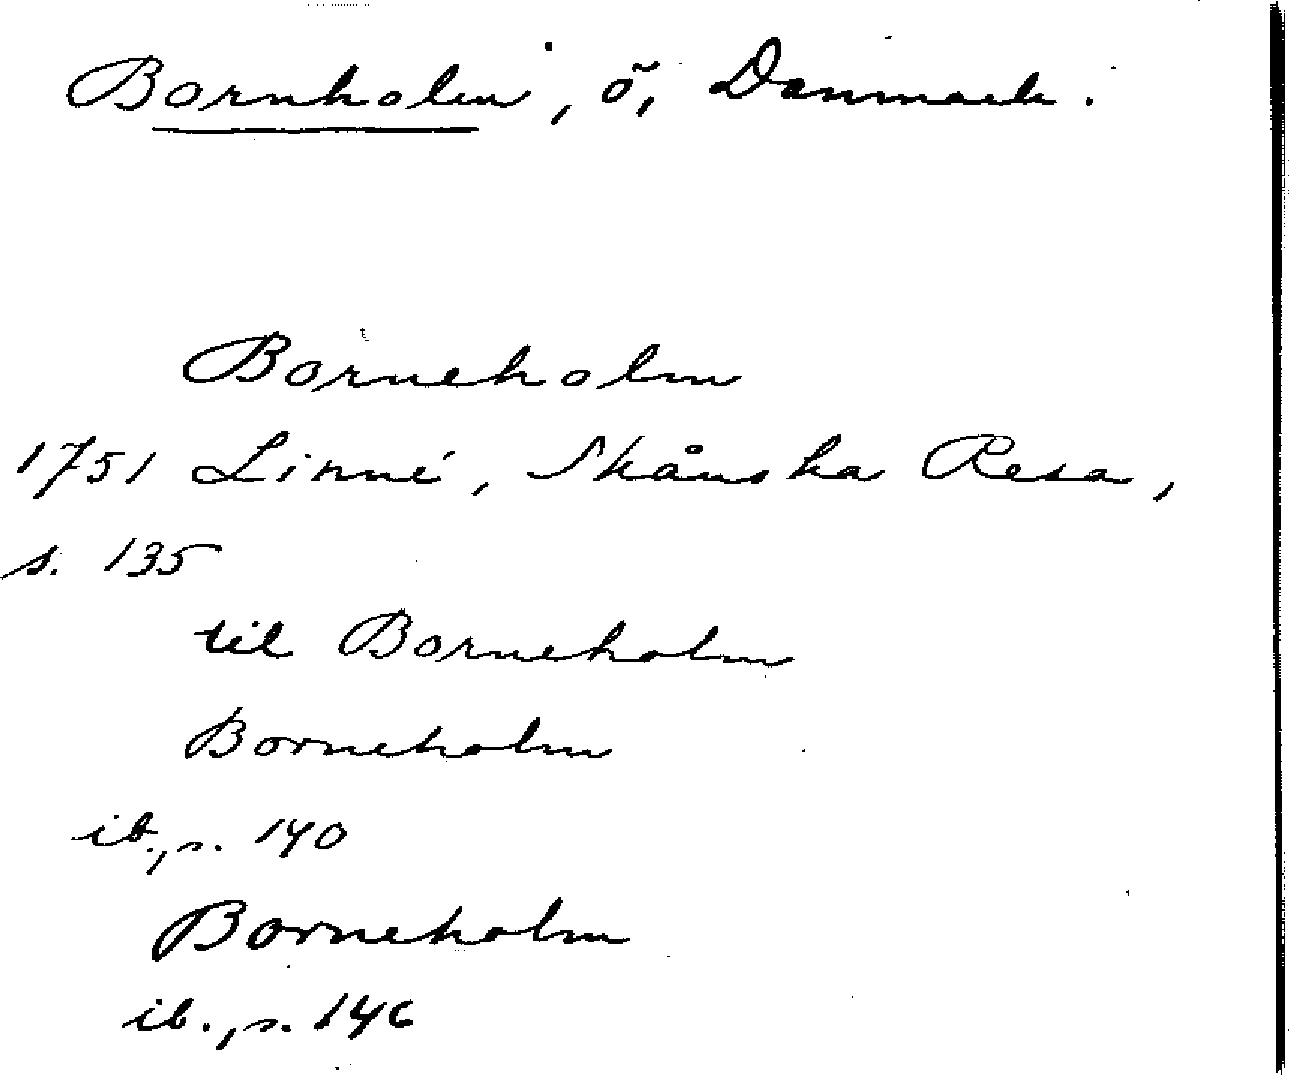 Bornholm, ö, Danmark.
Borneholm
1751 Linné, Skånska Resa,
s. 135
til Borneholm
Borneholm
ib., s. 140
Borneholm
ib., s. 146